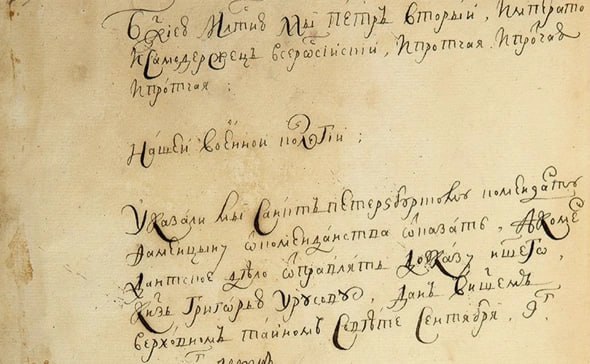 Бжиею Млтию Мы Пётръ Вторый, Императо
И Самодержецъ всероссїискїи, И протчая И протчая
И протчая :
Нашей военной колегїи ;
Указали мы Санктъ петербургскому коменданту
комендантства отказать, А коме
дантское дѣло отправлять до указу нашего,
Князь Григорью Урусову, Данъ в нашемъ
верховномъ тайномъ Совѣте Сентября, 9г